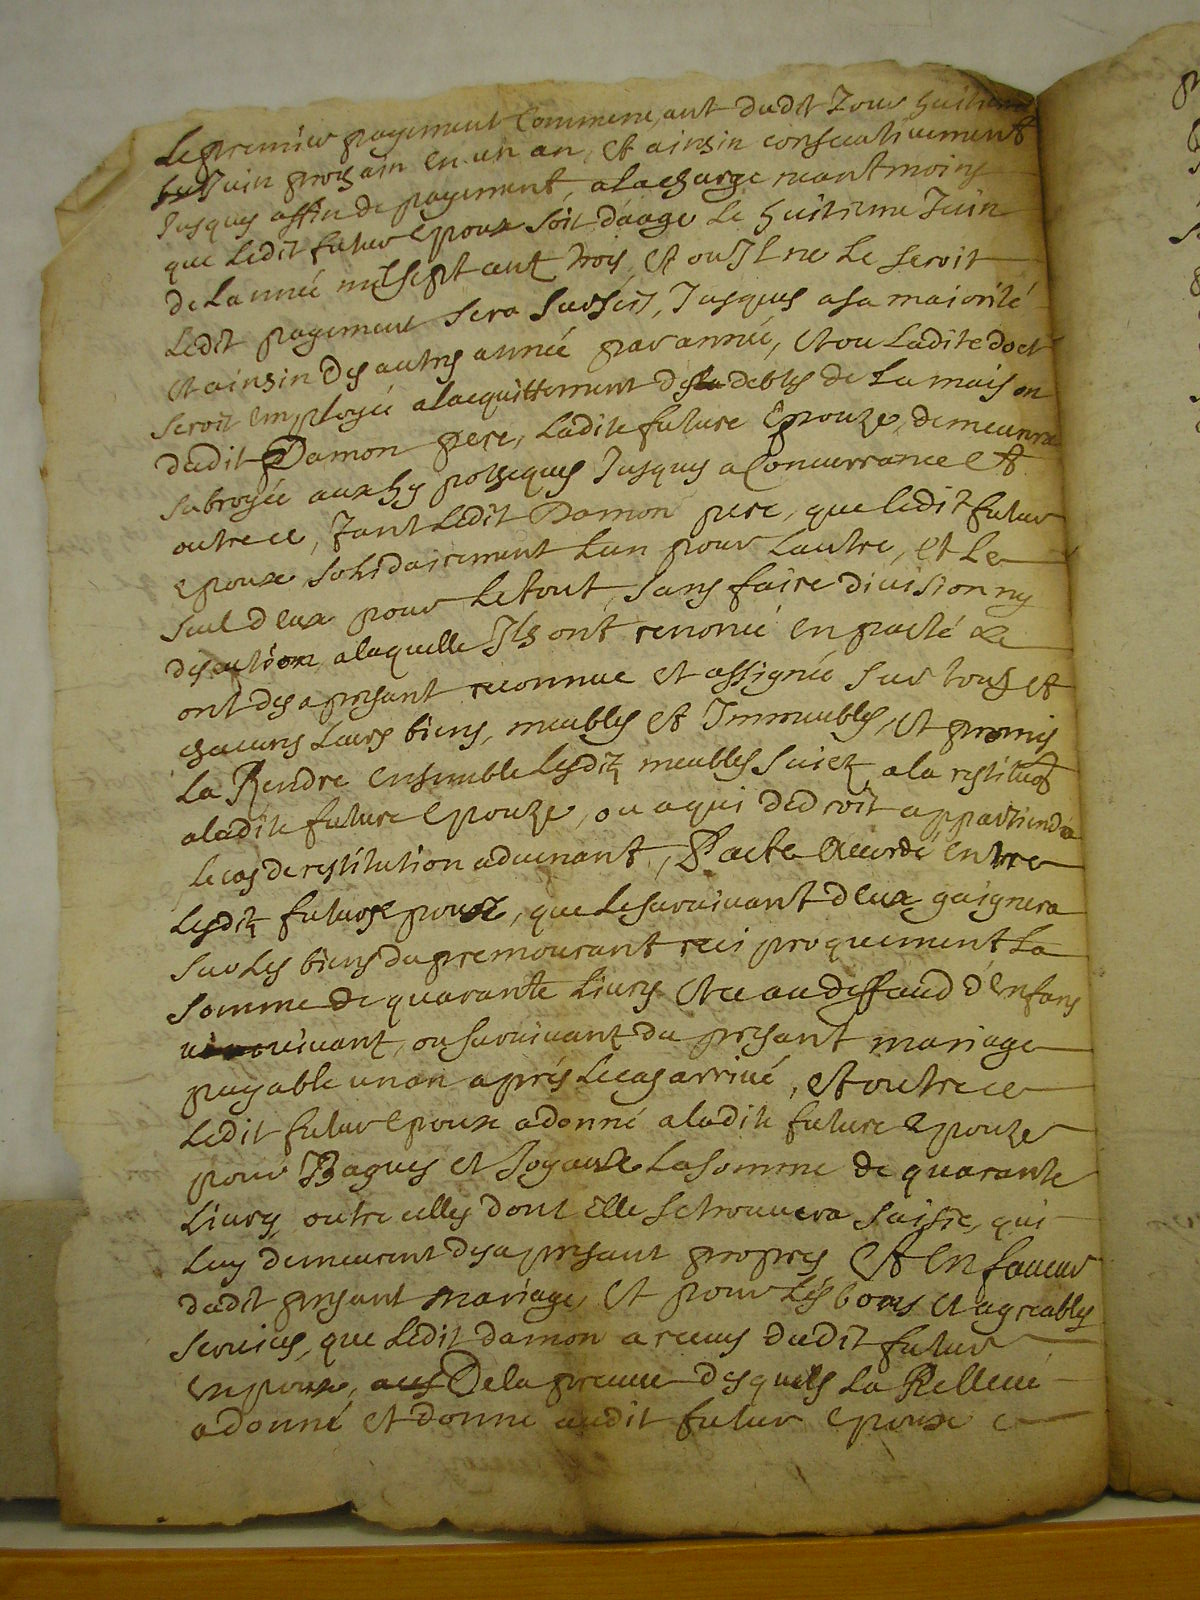 Le premier payement Commencant dudit Jour huitieme
Juin prochain en un an, et ainsin consecutivement
Jusques affin de payement, a la charge neantmoins
que Ledit futur epoux soit daage Le huitieme Juin
de Lannée mil sept cent trois, et ou Il ne Le seroit
Ledit payement sera sursis, Jusques a sa maiorité
et ainsin des autres année par année, et ou Ladite doct
seroit Employée a lacquittement des debtes de La maison
dudit Damon pere, Ladite future Epouze, demeurera
subrogée aux hypotheques Jusques a Concurrance et
outre ce, tant Ledit Damon pere, que ledit futur
epoux, solidairement Lun pour Lautre, et Le
seul deux pour Le tout, sans faire division ny
discution, a laquelle Ils ont renoncé en pacte La
ont des apresant reconnue et assignée sur tous et
chacuns Leurs biens, meubles et Immeubles, et promis
La Rendre ensemble Lesditz meubles suietz a la restitution
a ladite future epouze, ou a qui de droit appartiendra
le cas de restitution advenant, Pacte accordé entre
Lesditz futurs epoux, que Le survivant deux gaignera
sur Les biens du premourant reciproquement La
somme de quarante Livres et ce au deffaud d'enfans
vivant, ou survivant du presant mariage
payable un an aprés Le cas arrivé, et outre ce
Ledit futur epoux a donné a ladite future epouze
pour Bagues et Joyaux La somme de quarante
Livres, outre celles dont Elle se trouvera saisie, qui
Luy demeurent des apresant propres et en faveur
dudit presant mariage, et pour Les bons et agreables
services, que Ledit damon a receus dudit futur
epoux, De la preuve desquels La Relleué
a donné et donne audit futur epoux